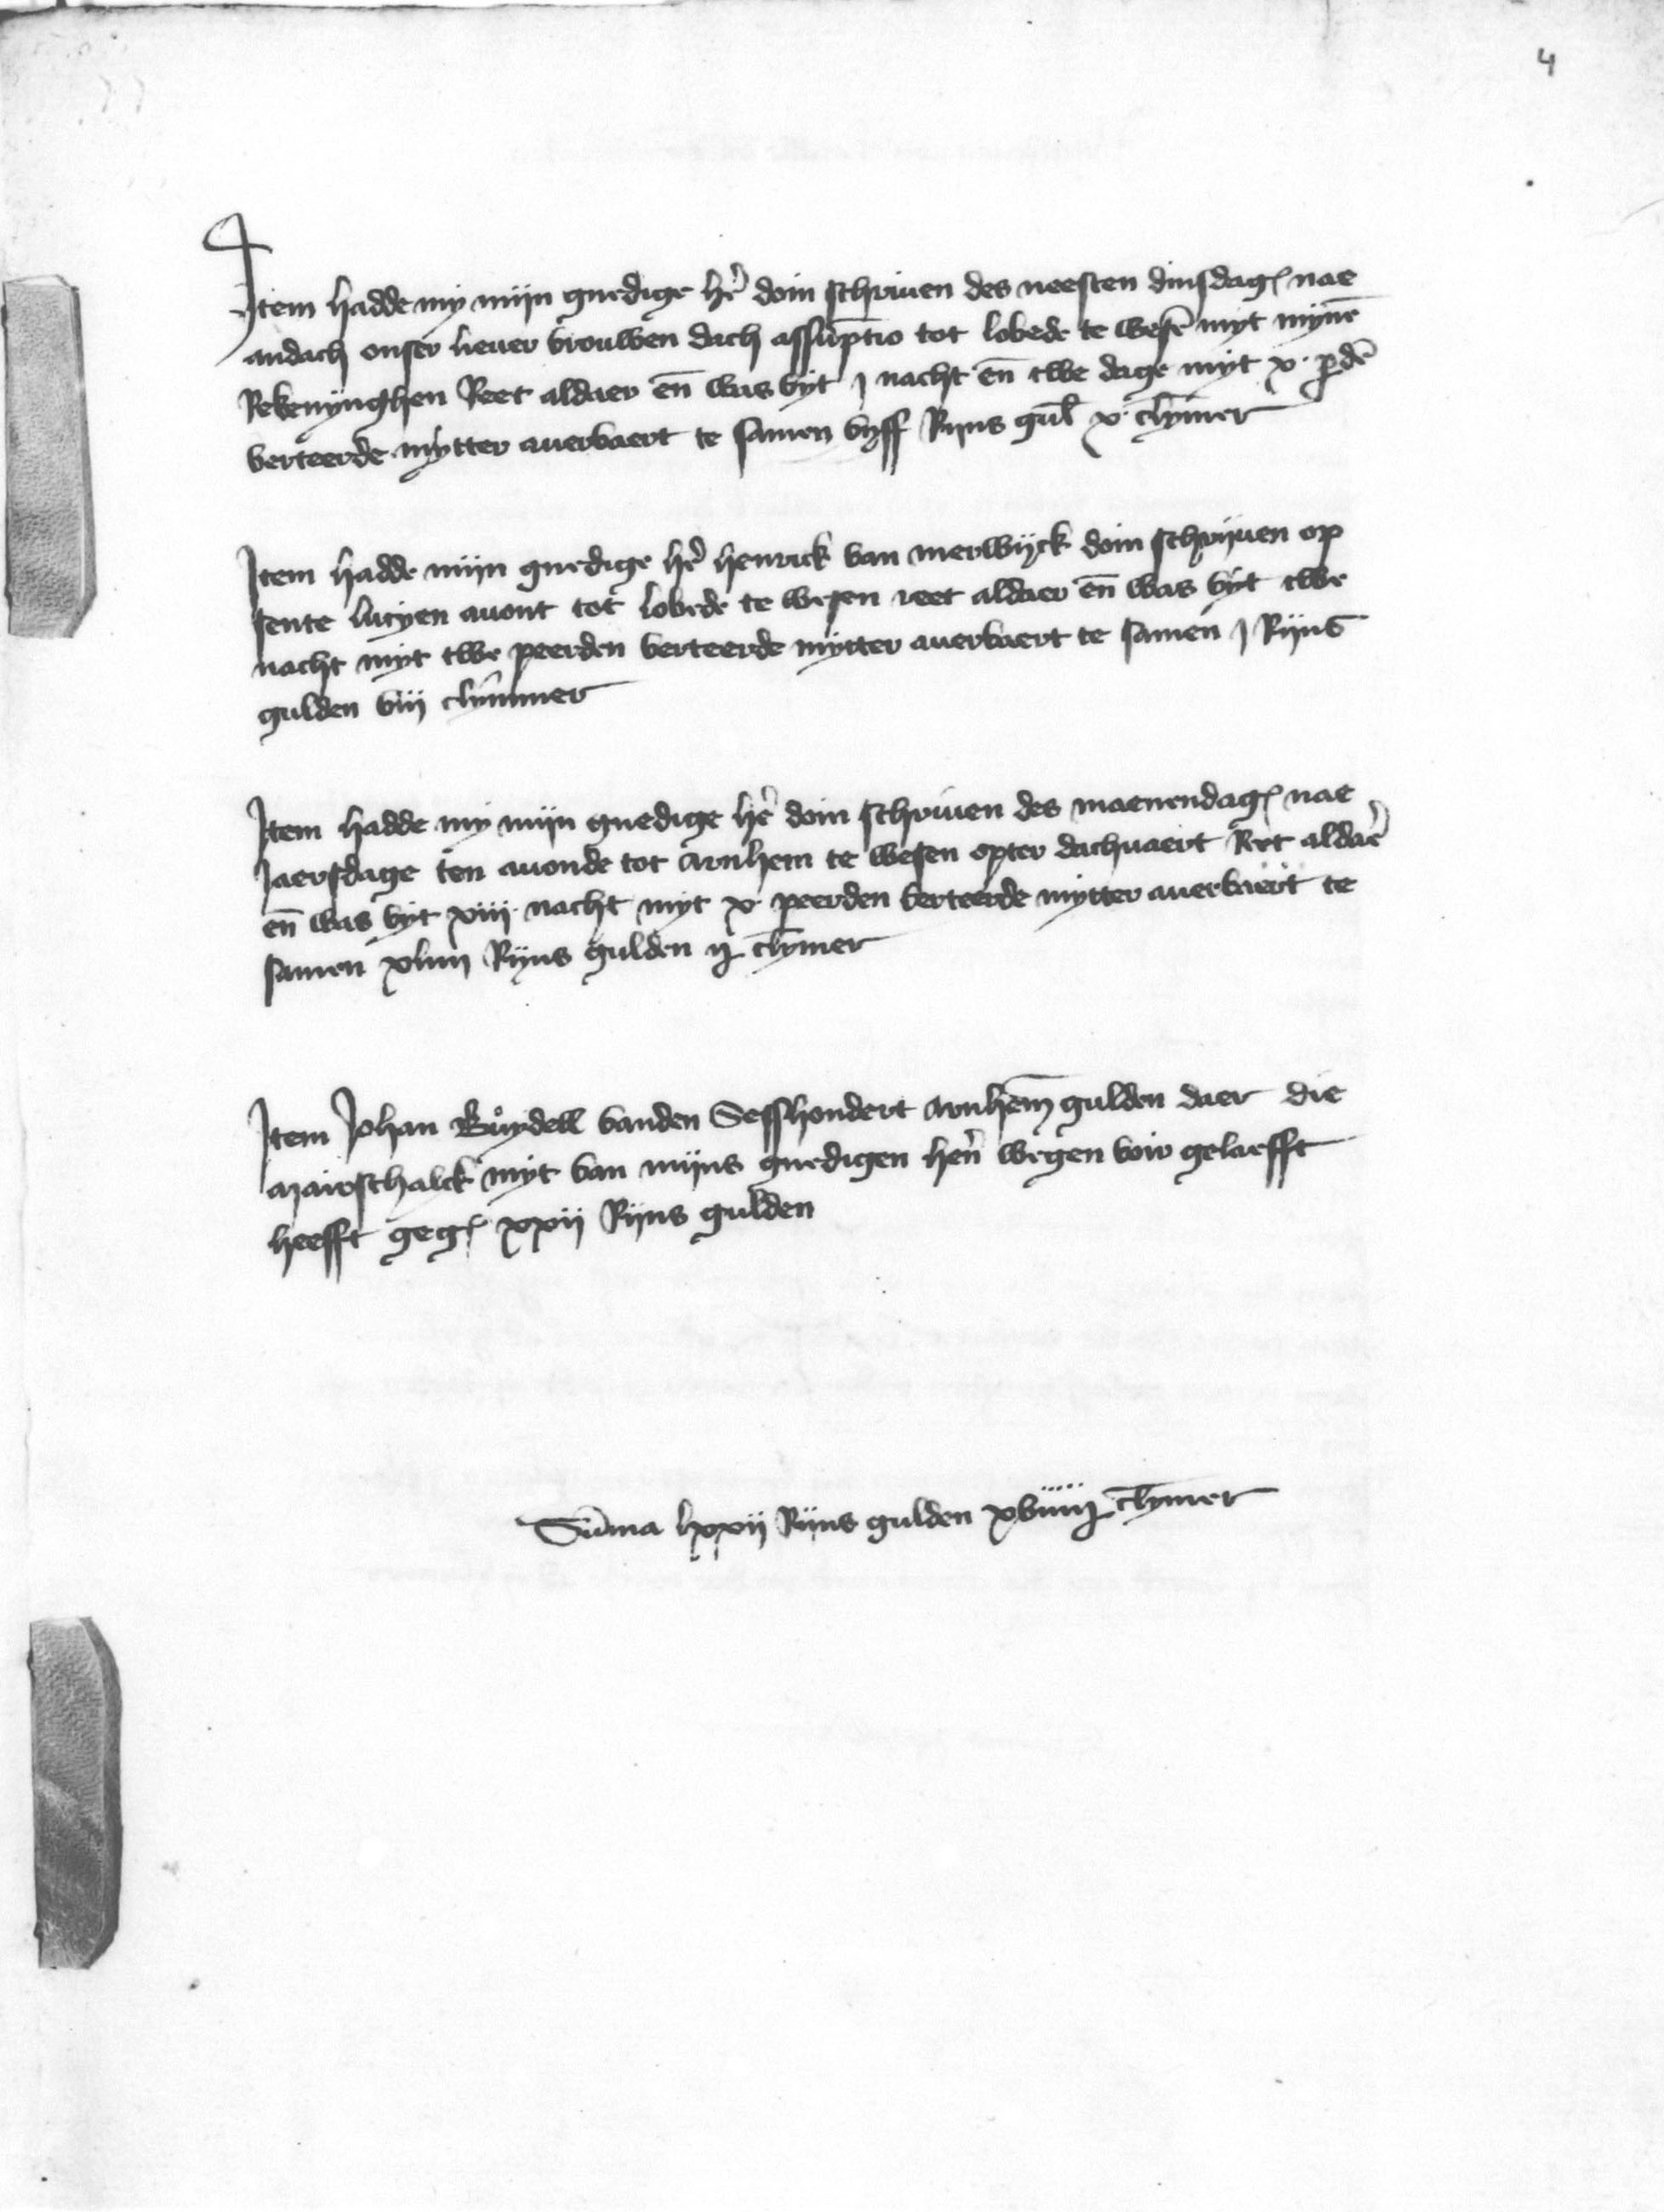 4
Item hadde my mijn gnedige her doin schriuen des neesten dinsdag nae
andach onser lieuer vrouwen dach assūptio tot lobede te wesē myt mijnē
Rekenijnghen Reet aldaer eñ was vyt j nacht eñ twe dage myt x. perdē
verteerde mytter auervaert te samen vijff Rijns gul x. clȳmer
Item hadde mijn gnedige her henrick van merwijck doin schrijuen op
sente lucyen auont tot lobede te wesen reet aldaer eñ was vyt twe
nacht myt twe peerden verteerde mytter auervaert te samen j Rijns
gulden viij clymmer
Item hadde my mijn gnedige her doin schriuen des maenendag nae
Jaersdage ten auonde tot Arnhem te wesen opter dachuaert Reet aldaer
eñ was vyt xiiij. nacht myt x. peerden verteerde mytter auervaert te
samen xliiij Rijns gulden ij clȳmer
Item Johan Bůydell vanden Sesshondert arnhem̄ gulden daer die
Mairschalck myt van mijns gnedigen heñ wegen voir gelaefft
heefft geg xxij Rijns gulden
Sum̄a lxxij Rijns gulden xviiij clȳmer